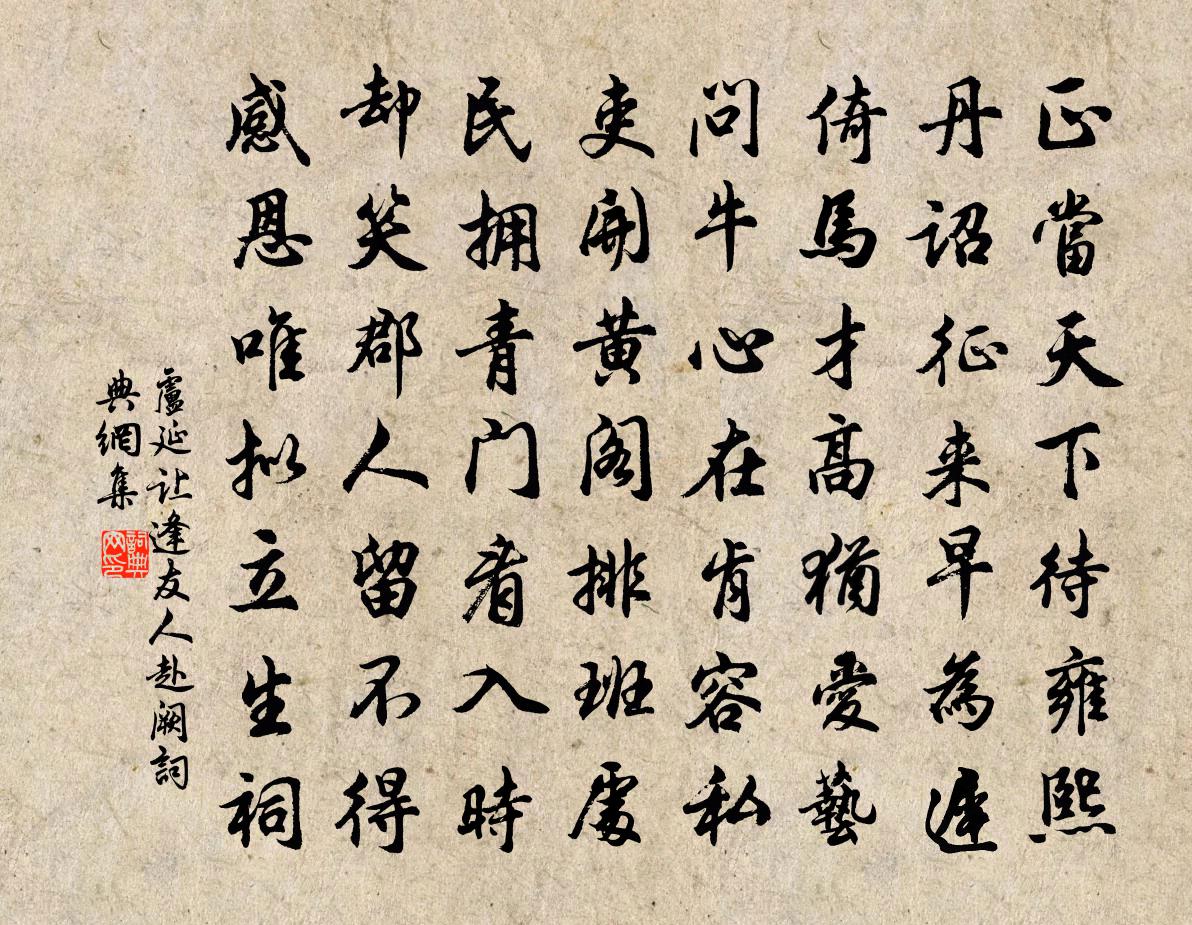 正當天下待雍熙
丹詔征来早為遲
倚馬才高猶愛藝
問牛心在肯容私
吏開黄阁排班處
民拥青门看入時
却笑郡人留不得
感恩唯拟立生祠
盧延让逢友人赴阙詞
典網集
詞典
网印